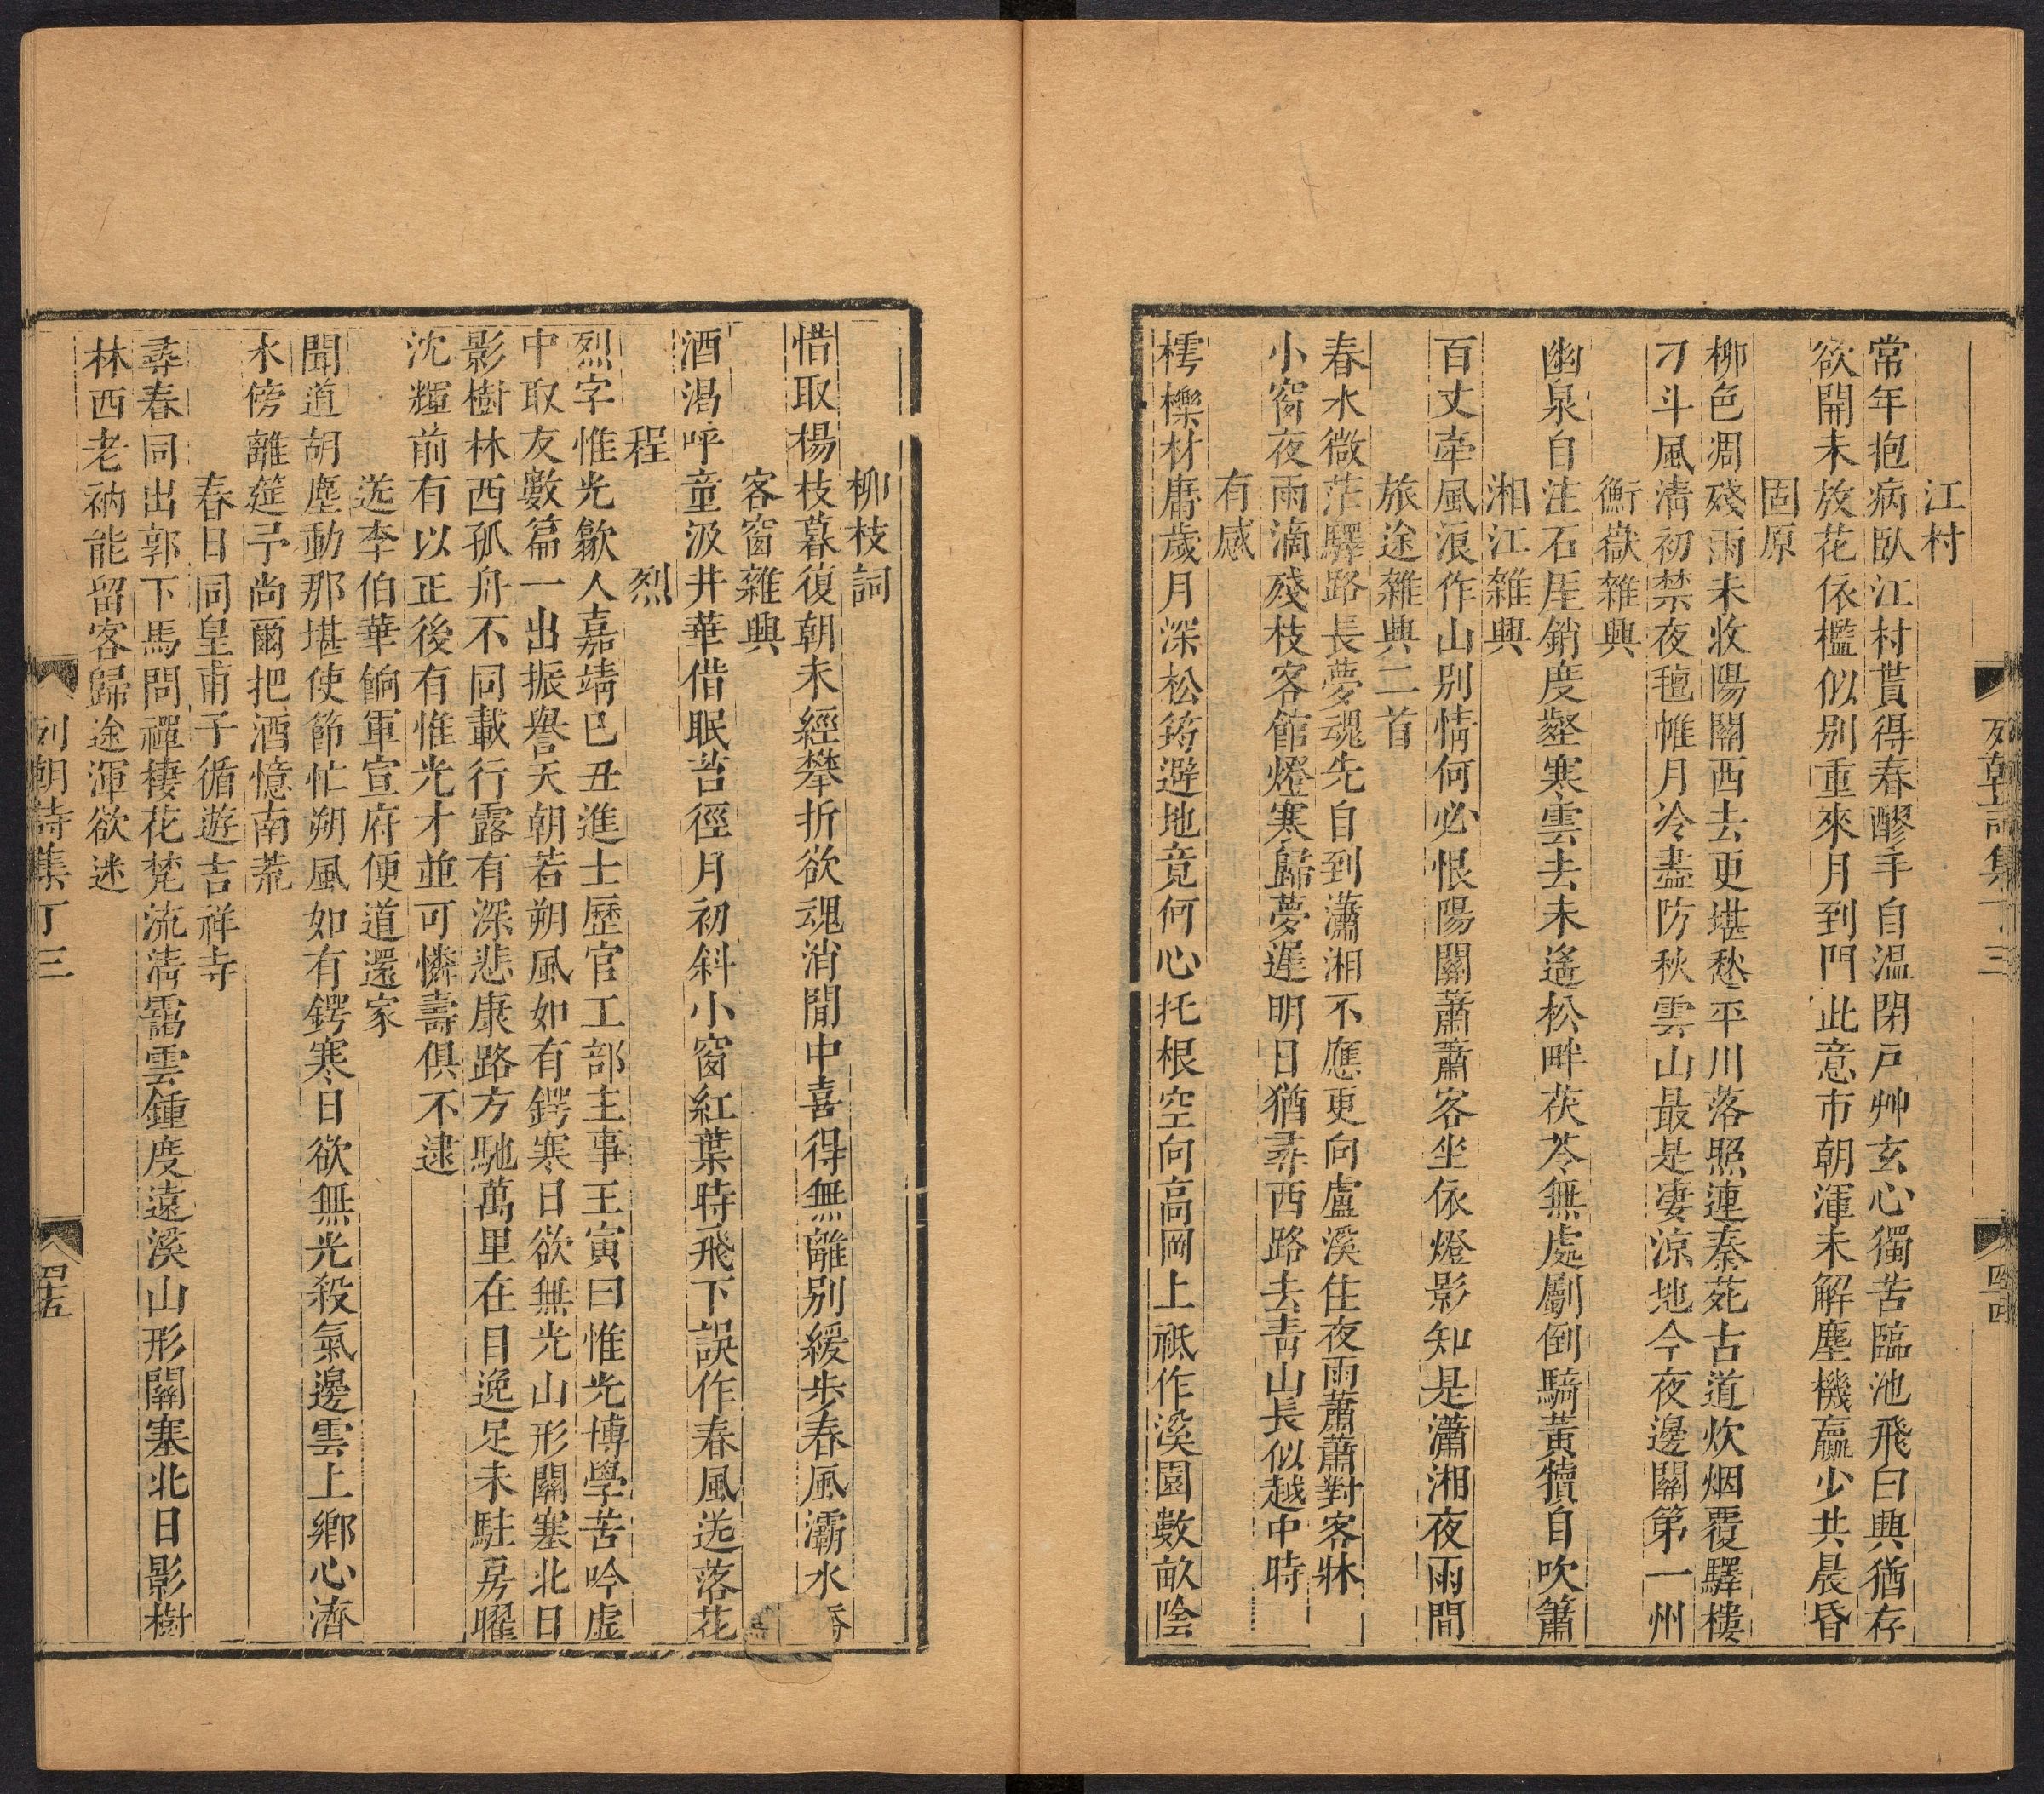 江村
常年抱病臥江村貰得春醪手自温閉戸艸玄心獨苦臨池飛白興猶存
欲開未放花依檻似別重來月到門此意市朝渾未解塵機贏少共晨昏
固原
柳色凋殘雨未收陽關西去更堪愁平川落照連秦苑古道炊烟覆驛樓
刁斗風淸初禁夜氊帷月冷盡防秋雲山最是凄涼地今夜邊關第一州
衡嶽雜興
幽泉自注石厓銷度壑寒雲去未遙松畔茯苓無處斸倒騎黃犢自吹簫
湘江雜興
百丈牽風浪作山別情何必恨陽關蕭蕭客坐依燈影知是瀟湘夜雨間
旅途雜興二首
春水微茫驛路長夢魂先自到瀟湘不應更向盧溪住夜雨蕭蕭對客牀
小窗夜雨滴殘枝客館燈寒歸夢遲明日猶尋西路去青山長似越中時
有感
樗櫟材庸歲月深松筠避地竟何心托根空向高岡上祗作溪園數畝陰
列朝詩集丁三
四十四
柳枝詞
惜取楊枝暮復朝未經攀折欲魂消閒中喜得無離別緩步春風灞水橋
客窗雜興
酒渴呼童汲井華借眠苔徑月初斜小窗紅葉時飛下誤作春風送落花
程烈
烈字惟光歙人嘉靖己丑進士歷官工部主事王寅曰惟光博學苦吟虛
中取友數篇一出振譽天朝若朔風如有鍔寒日欲無光山形關塞北日
影樹林西孤舟不同載行露有深悲康路方馳萬里在目逸足未駐房曜
沈輝前有以正後有惟光才並可憐壽俱不逮
送李伯華餉軍宣府便道還家
聞道胡塵動那堪使節忙朔風如有鍔寒日欲無光殺氣邊雲上鄉心濟
水傍離筵予尚爾把酒憶南荒
春日同皇甫子循遊吉祥寺
尋春同出郭下馬問禪棲花梵流淸靄雲鍾度遠溪山形關塞北日影樹
林西老衲能留客歸途渾欲迷
列朝詩集丁三
四十五